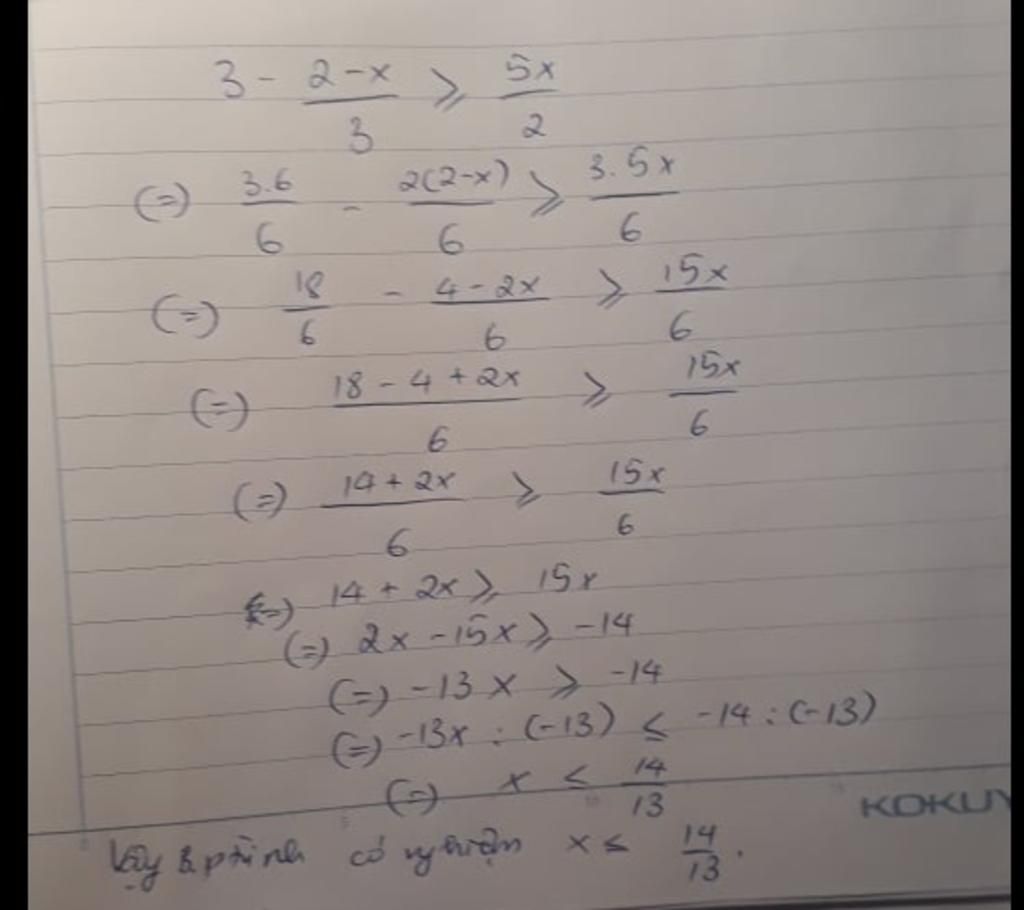 3 - (2-x)/3 ⩾ 5x/2
(=) 3.6/6 - 2(2-x)/6 ⩾ 3.5x/6
(=) 18/6 - (4-2x)/6 ⩾ 15x/6
(=) (18-4+2x)/6 ⩾ 15x/6
(=) (14+2x)/6 ⩾ 15x/6
(=) 14+2x ⩾ 15x
(=) 2x-15x ⩾ -14
(=) -13x ⩾ -14
(=) -13x : (-13) ≤ -14 : (-13)
(=) x ≤ 14/13
KOKUY
Vậy có nghiệm x ≤ 14/13.